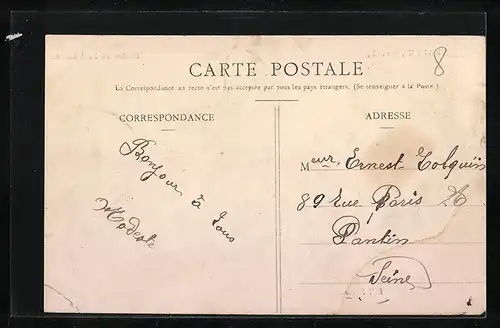 8
CARTE POSTALE
La Correspondance au recto n'est pas acceptée par tous les pays étrangers. (Se renseigner à la Poste.)
CORRESPONDANCE
ADRESSE
Bonjour à tous
Modeste
Meur Ernest
89 Rue Paris
Pantin
Seine